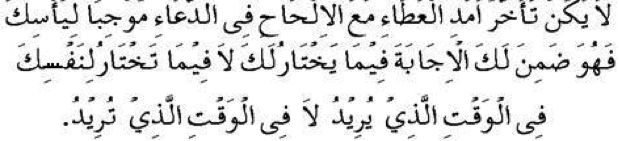 لَا يَكُنْ تَأَخُّرُ اَمَدِ الْعَطَاءِ مَعَ الْاِلْحَاحِ فِى الدُّعَاءِ مُوْجِبًا لِيَأْسِكَ
فَهُوَ ضَمِنَ لَكَ الْاِجَابَةَ فِيْمَا يَخْتَارُلَكَ لَا فِيْمَا تَخْتَارُلِنَفْسِكَ
فِى الْوَقْتِ الَّذِيْ يُرِيْدُ لَا فِى الْوَقْتِ الَّذِيْ تُرِيْدُ.